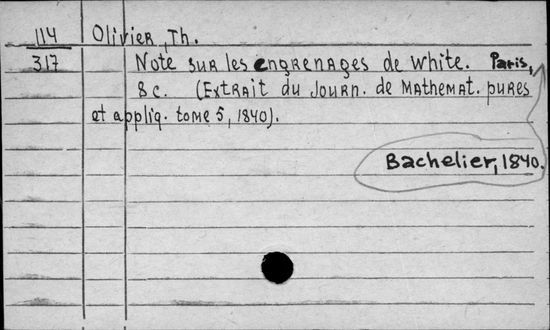 114 Olivier, Th.
317 Note sur les engrenages de White. Paris,
8 c. (Extrait du Journ. de Mathemat. pures
et appliq. tome 5, 1840).
Bachelier, 1840.